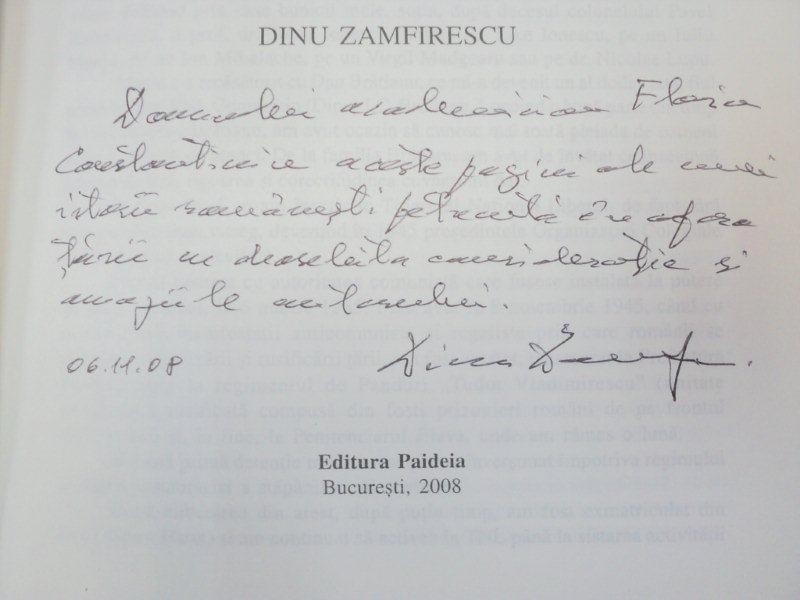 DINU ZAMFIRESCU
Domnului academician Florin
Constantiniu aceste pagini ale unei
istorii românești petrecută în afara
țării cu deosebita considerație și
omagiile autorului.
06.11.08 Dinu Zamfirescu.
Editura Paideia
București, 2008